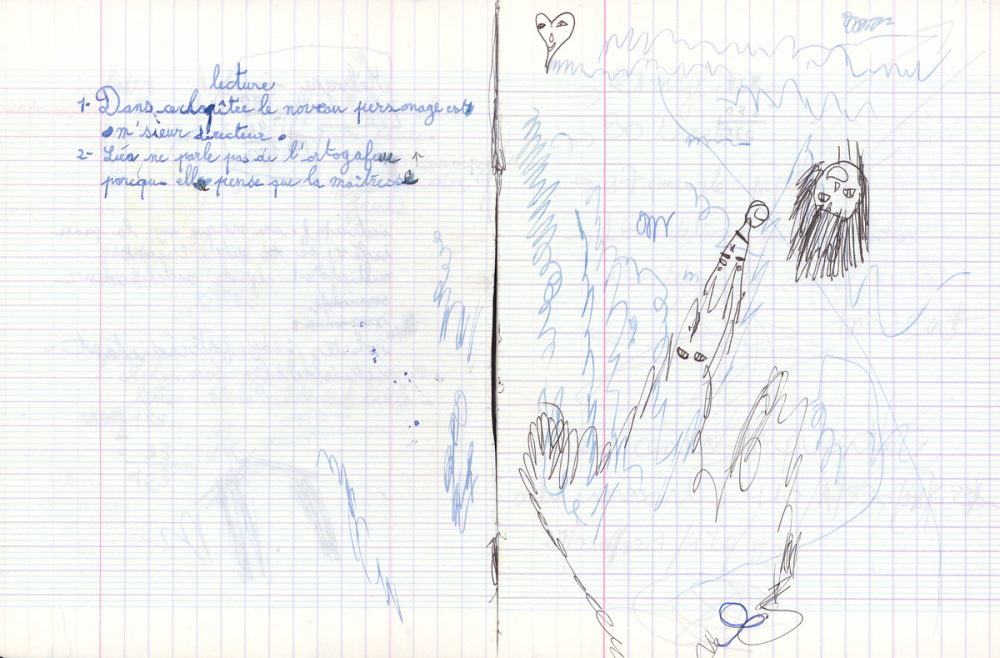 lecture
1- Dans ce chapître le noveau personage est
m'sieur directeur.
2- Léa ne parle pas de l'ortogafue
porequ- elle pense que la maîtresse